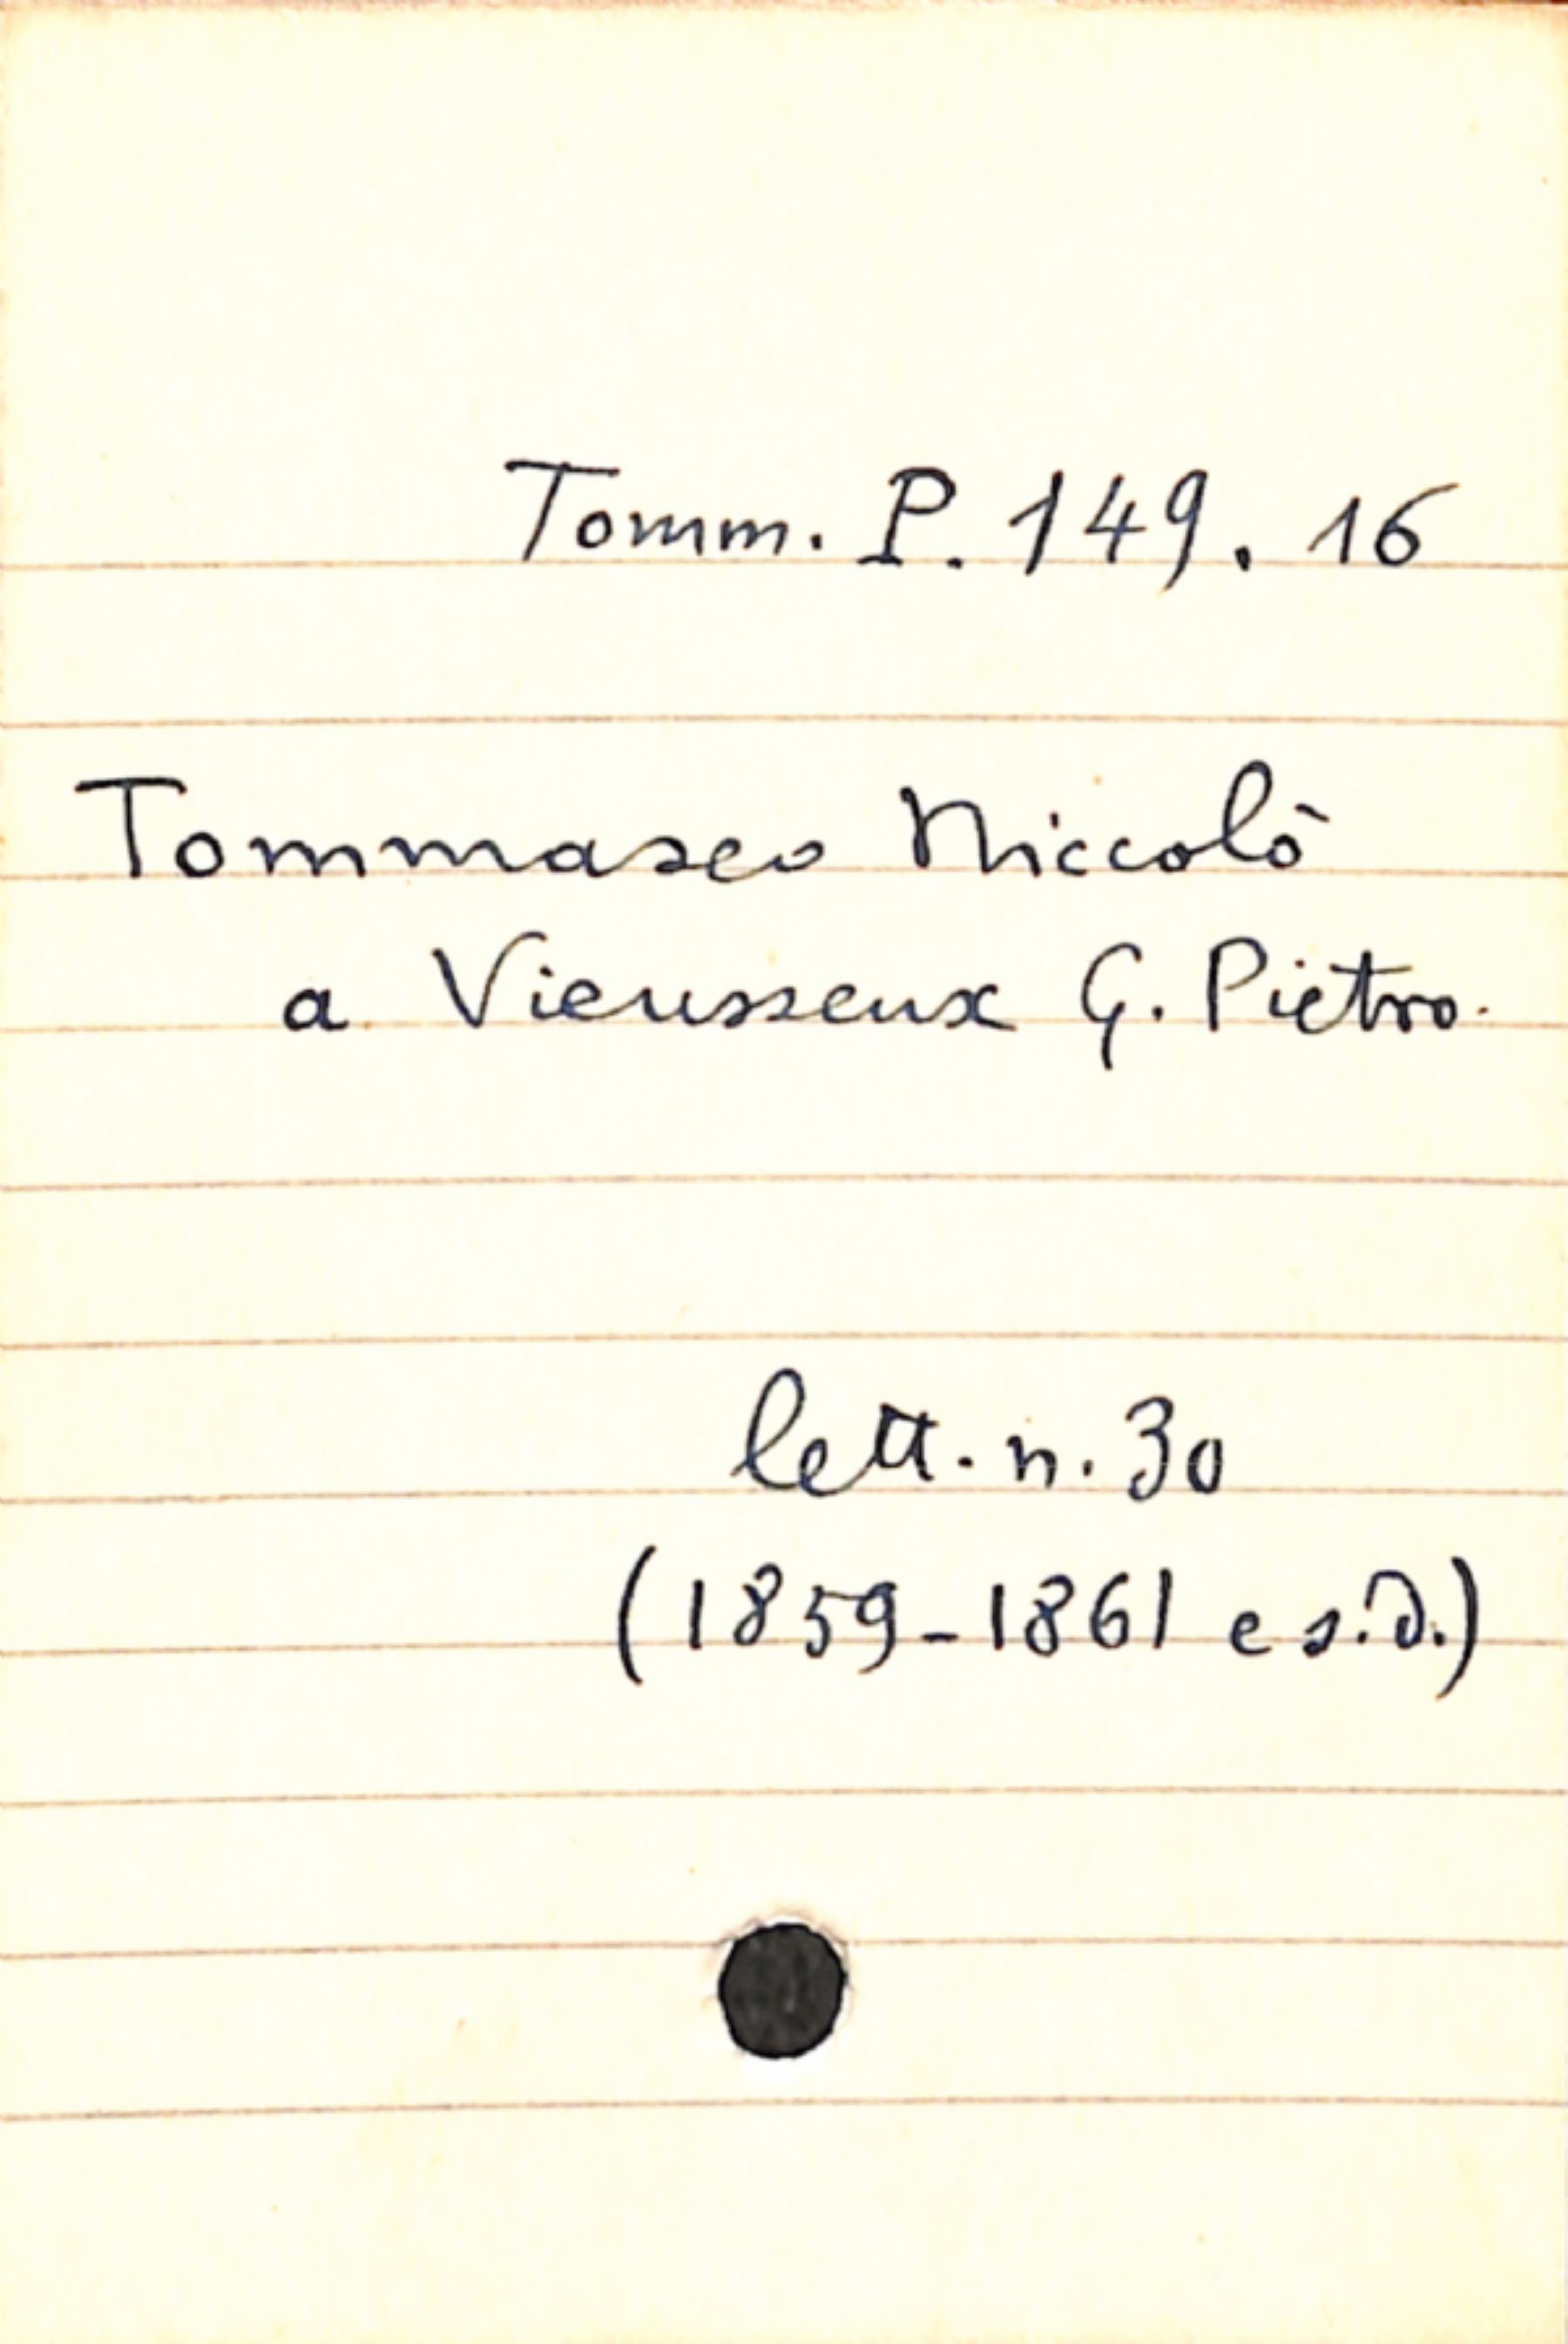 Tomm. P. 149. 16
Tommaseo Niccolò
a Vieusseux G. Pietro.
lett. n. 30
(1859-1861 e s.d.)